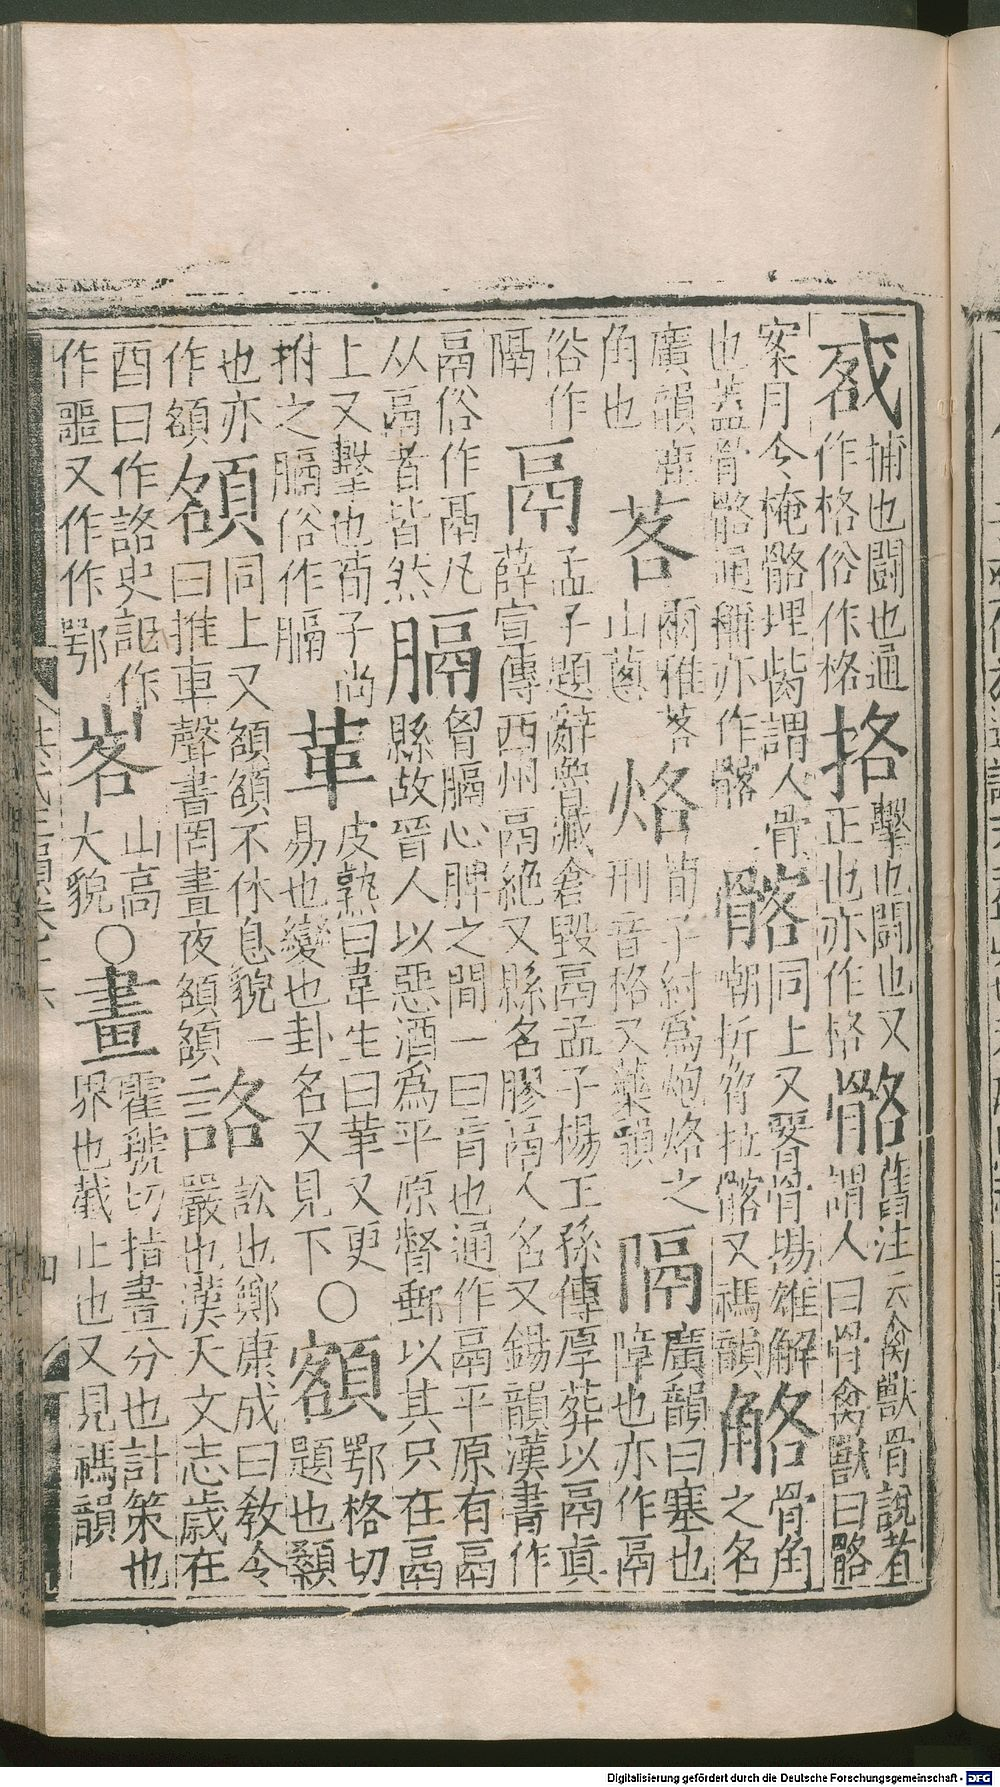 㦴捕也鬭也通作格俗作格挌擊也鬭也又正也亦作格骼舊注云禽獸骨說者謂人曰骨禽獸曰骼
案月令掩骼埋胔謂人骨也蓋骨骼通稱亦作髂髂同上又䯒骨揚雄解嘲折脅拉髂又禡韻觡骨角之名
廣韻鹿角也茖爾雅茖山蔥烙荀子紂爲炮烙之刑音格又藥韻隔廣韻曰塞也障也亦作鬲
俗作隔鬲孟子題辭魯臧倉毀鬲孟子楊王孫傳厚葬以鬲眞薛宣傳西州鬲絶又縣名膠鬲人名又錫韻漢書作
鬲俗作鬲凡从鬲者皆然膈胷膈心脾之間一曰肓也通作鬲平原有鬲縣故晉人以惡酒爲平原督郵以其只在鬲
上又擊也荀子尚拊之膈俗作膈革皮熟曰韋生曰革又更易也變也卦名又見下○額鄂格切題也顙
也亦作額頟同上又頟頟不休息貌一曰推車聲書罔晝夜頟頟詻訟也鄭康成曰教令嚴也漢天文志歲在
酉曰作詻史記作作噩又作作鄂峉山高大貌○畫霍虢切指畫分也計策也界也截止也又見禡韻
Digitalisierung gefördert durch die Deutsche Forschungsgemeinschaft - DFG